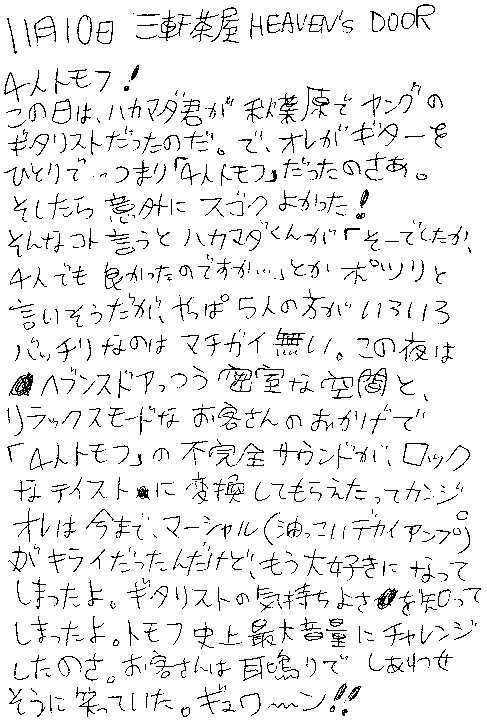 11月10日 三軒茶屋 HEAVEN's DOOR
4人トモフ!
この日は、ハカマダ君が秋葉原でヤングの
ギタリストだったのだ。で、オレがギターを
ひとりで…つまり「4人トモフ」だったのさあ。
そしたら意外にスゴクよかった!
そんなコト言うとハカマダくんが「そーでしたか、
4人でも良かったのですか…」とかポツリと
言いそうだが、やっぱ5人の方がいろいろ
バッチリなのはマチガイ無い。この夜は
ヘブンスドアっつう密室な空間と、
リラックスモードなお客さんのおかげで
「4人トモフ」の不完全サウンドが、ロック
なテイストに変換してもらえたってカンジ
オレは今まで、マーシャル(油っこいデカイアンプ)
がキライだったんだけど、もう大好きになって
しまったよ。ギタリストの気持ちよさを知って
しまったよ。トモフ史上最大音量にチャレンジ
したのさ。お客さんは耳鳴りでしあわせ
そうに笑っていた。ギュワーン!!